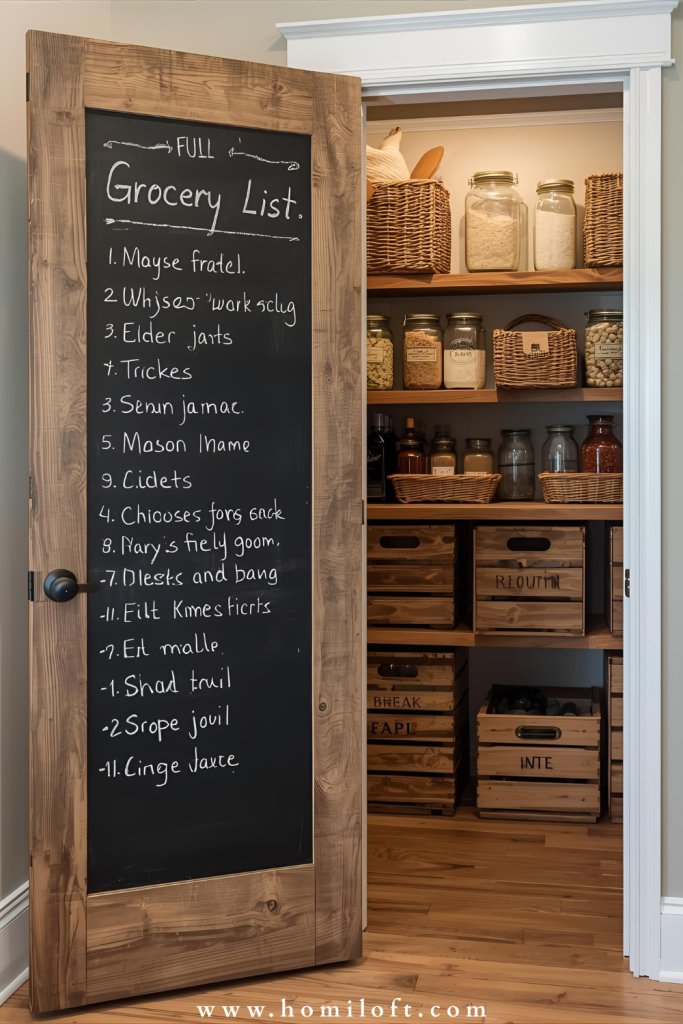 FULL
Grocery List.
1. Mayse fratel.
2 Whjseo work sclug
3. Elder jarts
4. Trickes
3. Senun jamac.
5. Mason lhame
9. Cidets
4. Chiooses forg sack
8. Nary's fiely goom.
-7. Dlesks and bang
-11. Eilt Kmes tierts
-7. Eit malle.
-1. Shad truil
-2 Srope jouil
-11. Cinge Jauce
RIOUTIN
BREAK
FAPL
INTE
www.homiloft.com